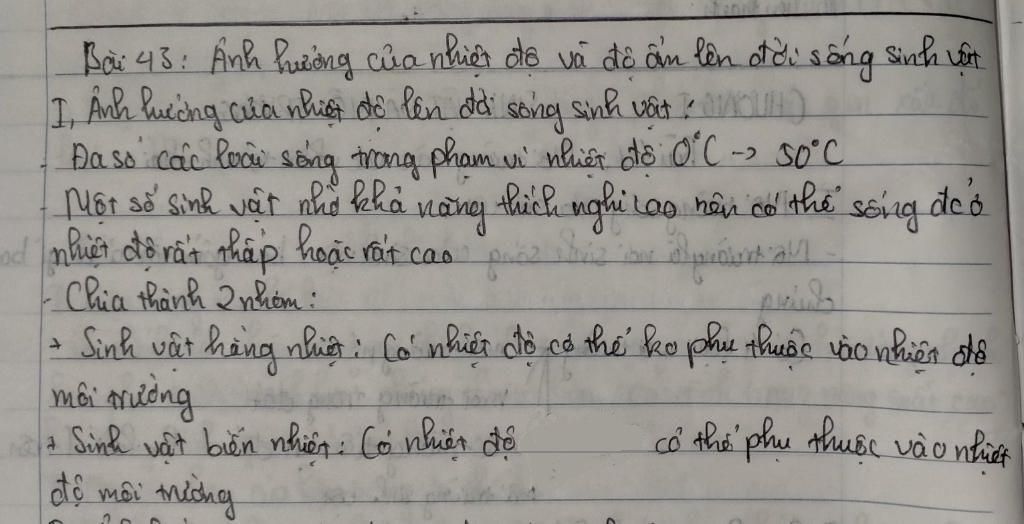 Bài 43: Ảnh hưởng của nhiệt độ và độ ẩm lên đời sống sinh vật
I, Ảnh hưởng của nhiệt độ lên đời sống sinh vật:
- Đa số các loài sống trong phạm vi nhiệt độ 0°C → 50°C
- Một số sinh vật nhờ khả năng thích nghi cao nên có thể sống đc ở
nhiệt độ rất thấp hoặc rất cao
- Chia thành 2 nhóm:
+ Sinh vật hằng nhiệt: Có nhiệt độ cơ thể ko phụ thuộc vào nhiệt độ
môi trường
+ Sinh vật biến nhiệt: Có nhiệt độ cơ thể phụ thuộc vào nhiệt
độ môi trường